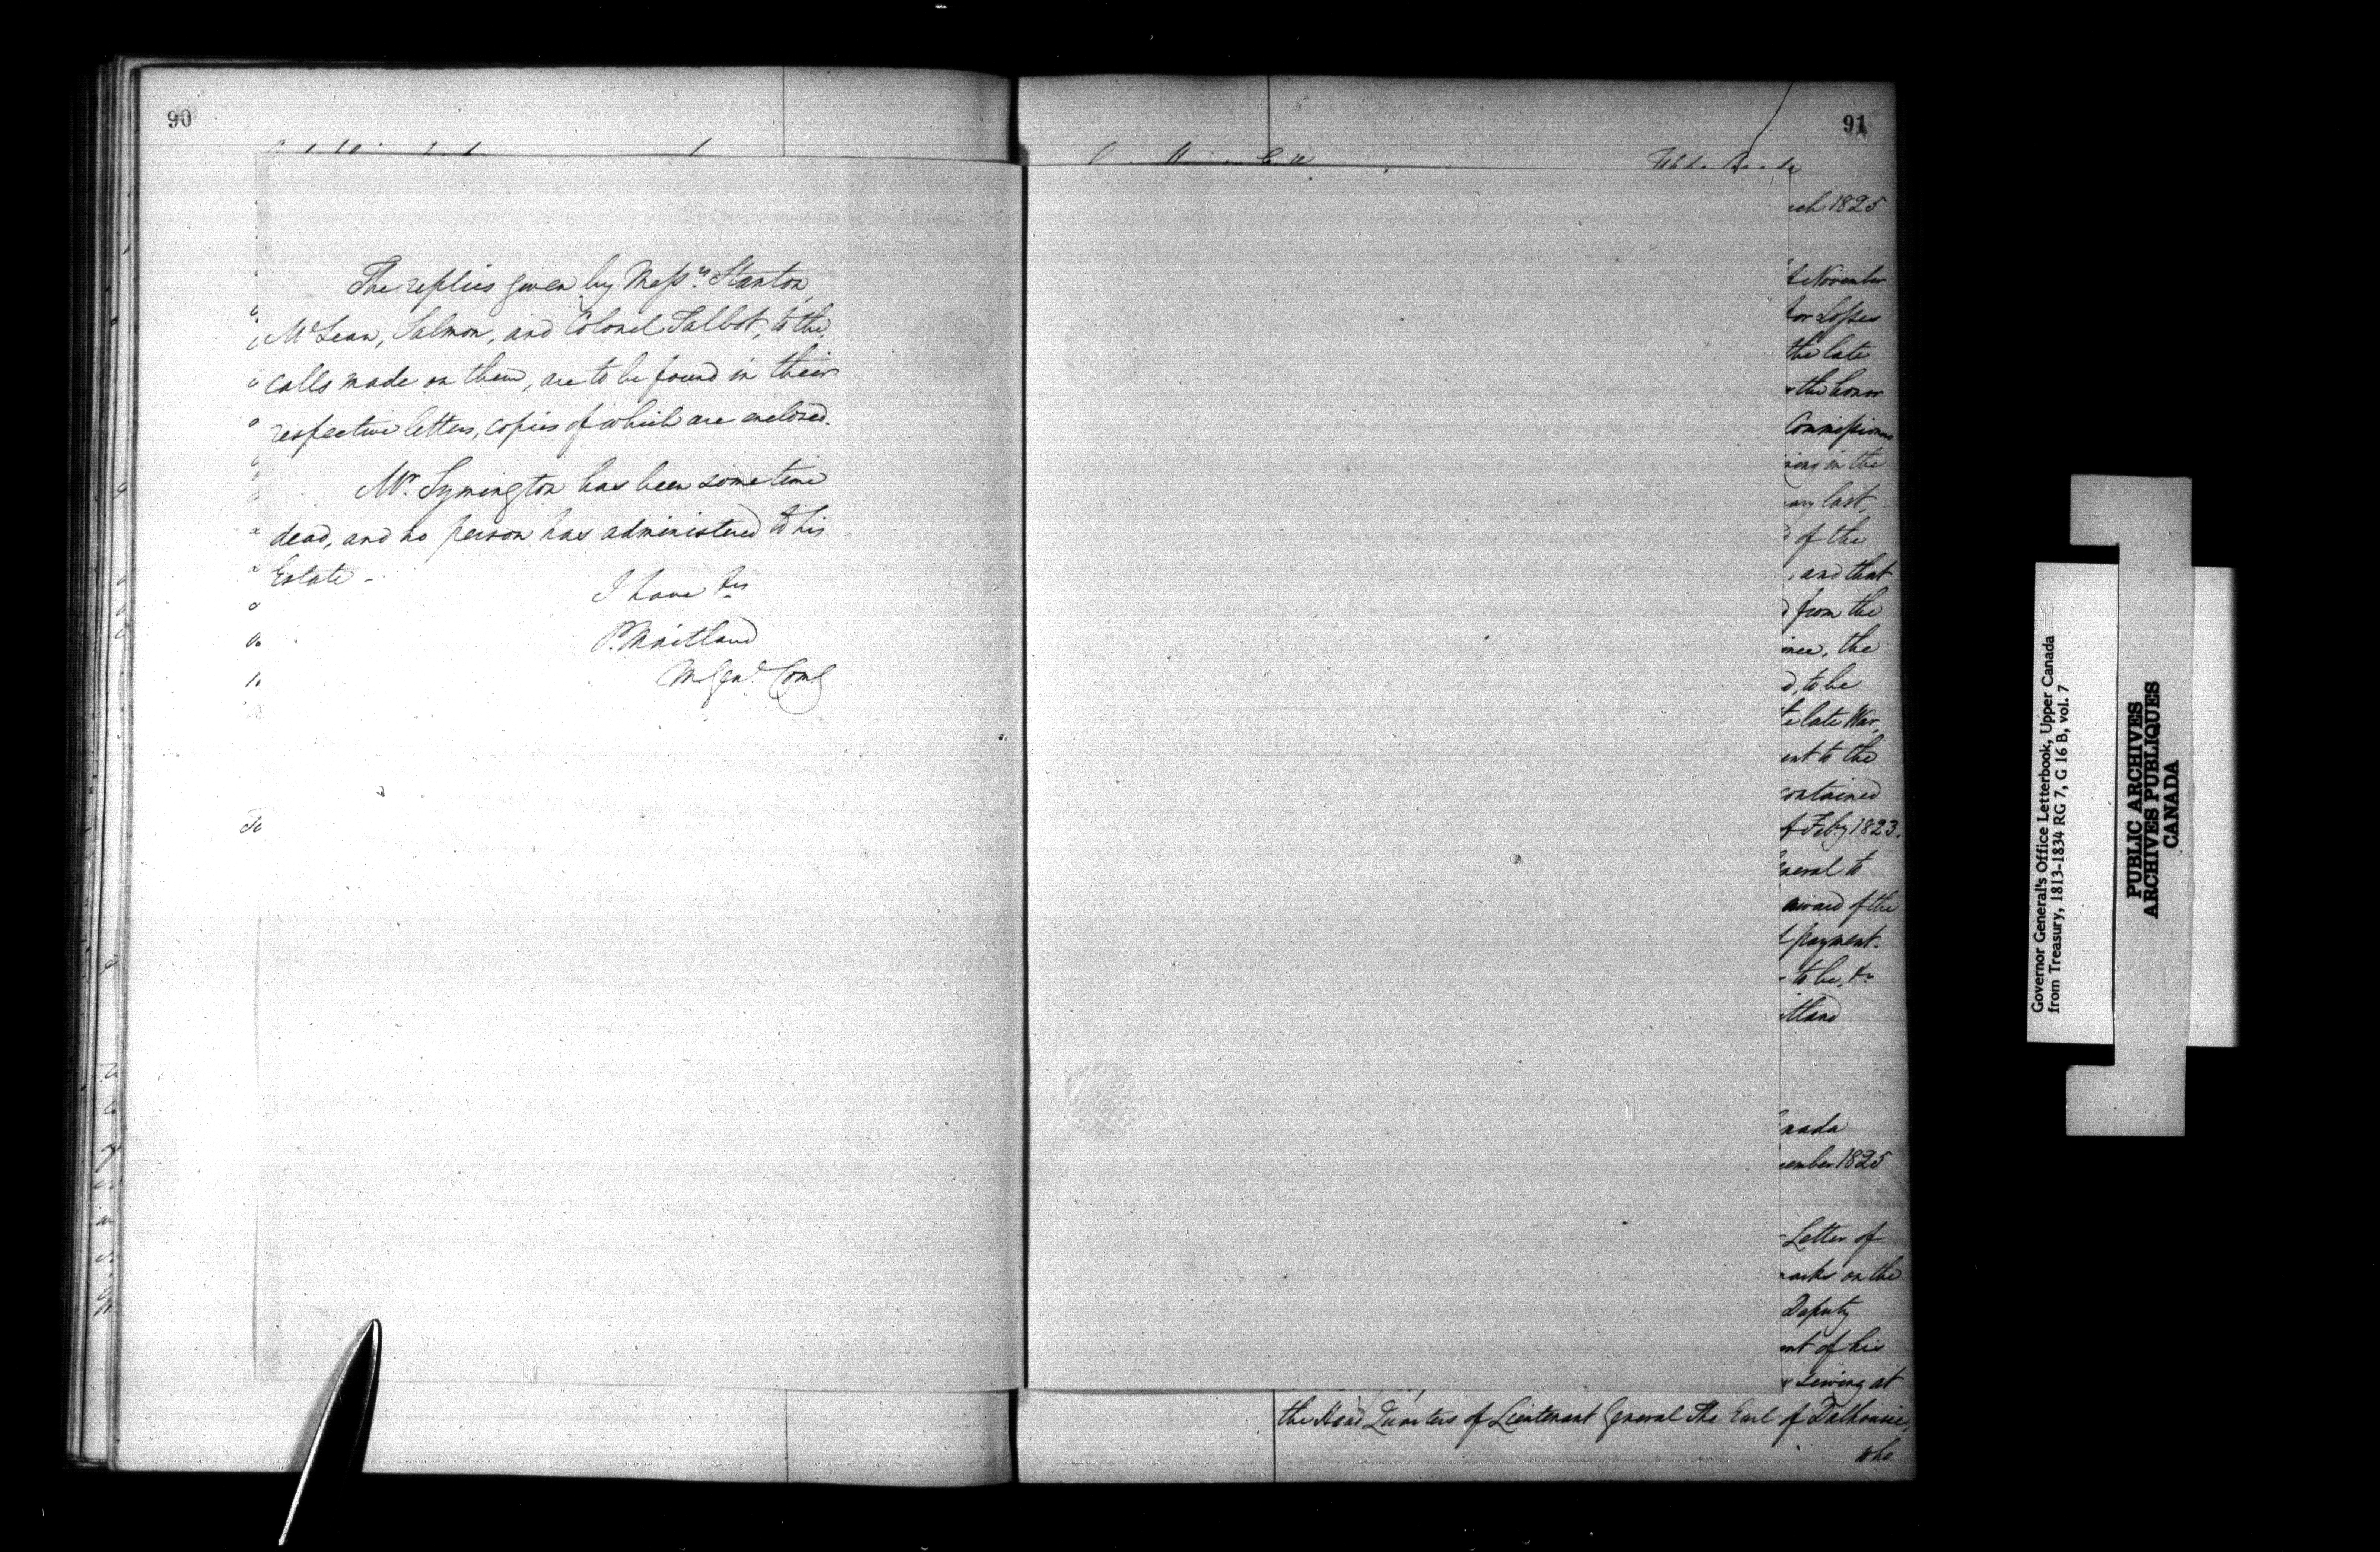 90
The replies given by Messrs. Stanton,
McLean, Salmon, and Colonel Talbot, to the
calls made on them, are to be found in their
respective letters, copies of which are enclosed.
Mr. Symington has been some time
dead, and no person has administered to his
Estate -
I have &c
P. Maitland
M. Genl. Comg
To
91
ch 1825
November
for Losses
the late
the honor
Commissioners
ing in the
ary last,
of the
, and that
from the
ince, the
d, to be
te late War,
ent to the
contained
Feby 1823.
neral to
award of the
payment.
to be, &c
itland
nada
ember 1825
Letter of
marks on the
Deputy
nt of his
r serving at
the Head Quarters of Lieutenant General The Earl of Dalhousie,
who
Governor General's Office Letterbook, Upper Canada
from Treasury, 1813-1834 RG 7, G 16 B, vol. 7
PUBLIC ARCHIVES
ARCHIVES PUBLIQUES
CANADA